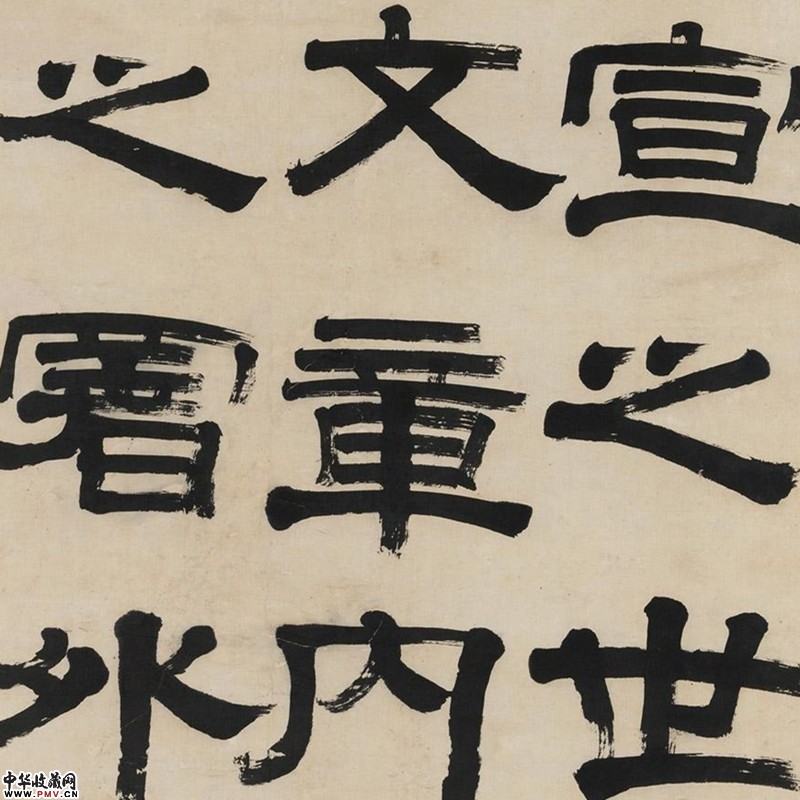 宣之世
文章内
之署外
中华收藏网
WWW.PMV.CN